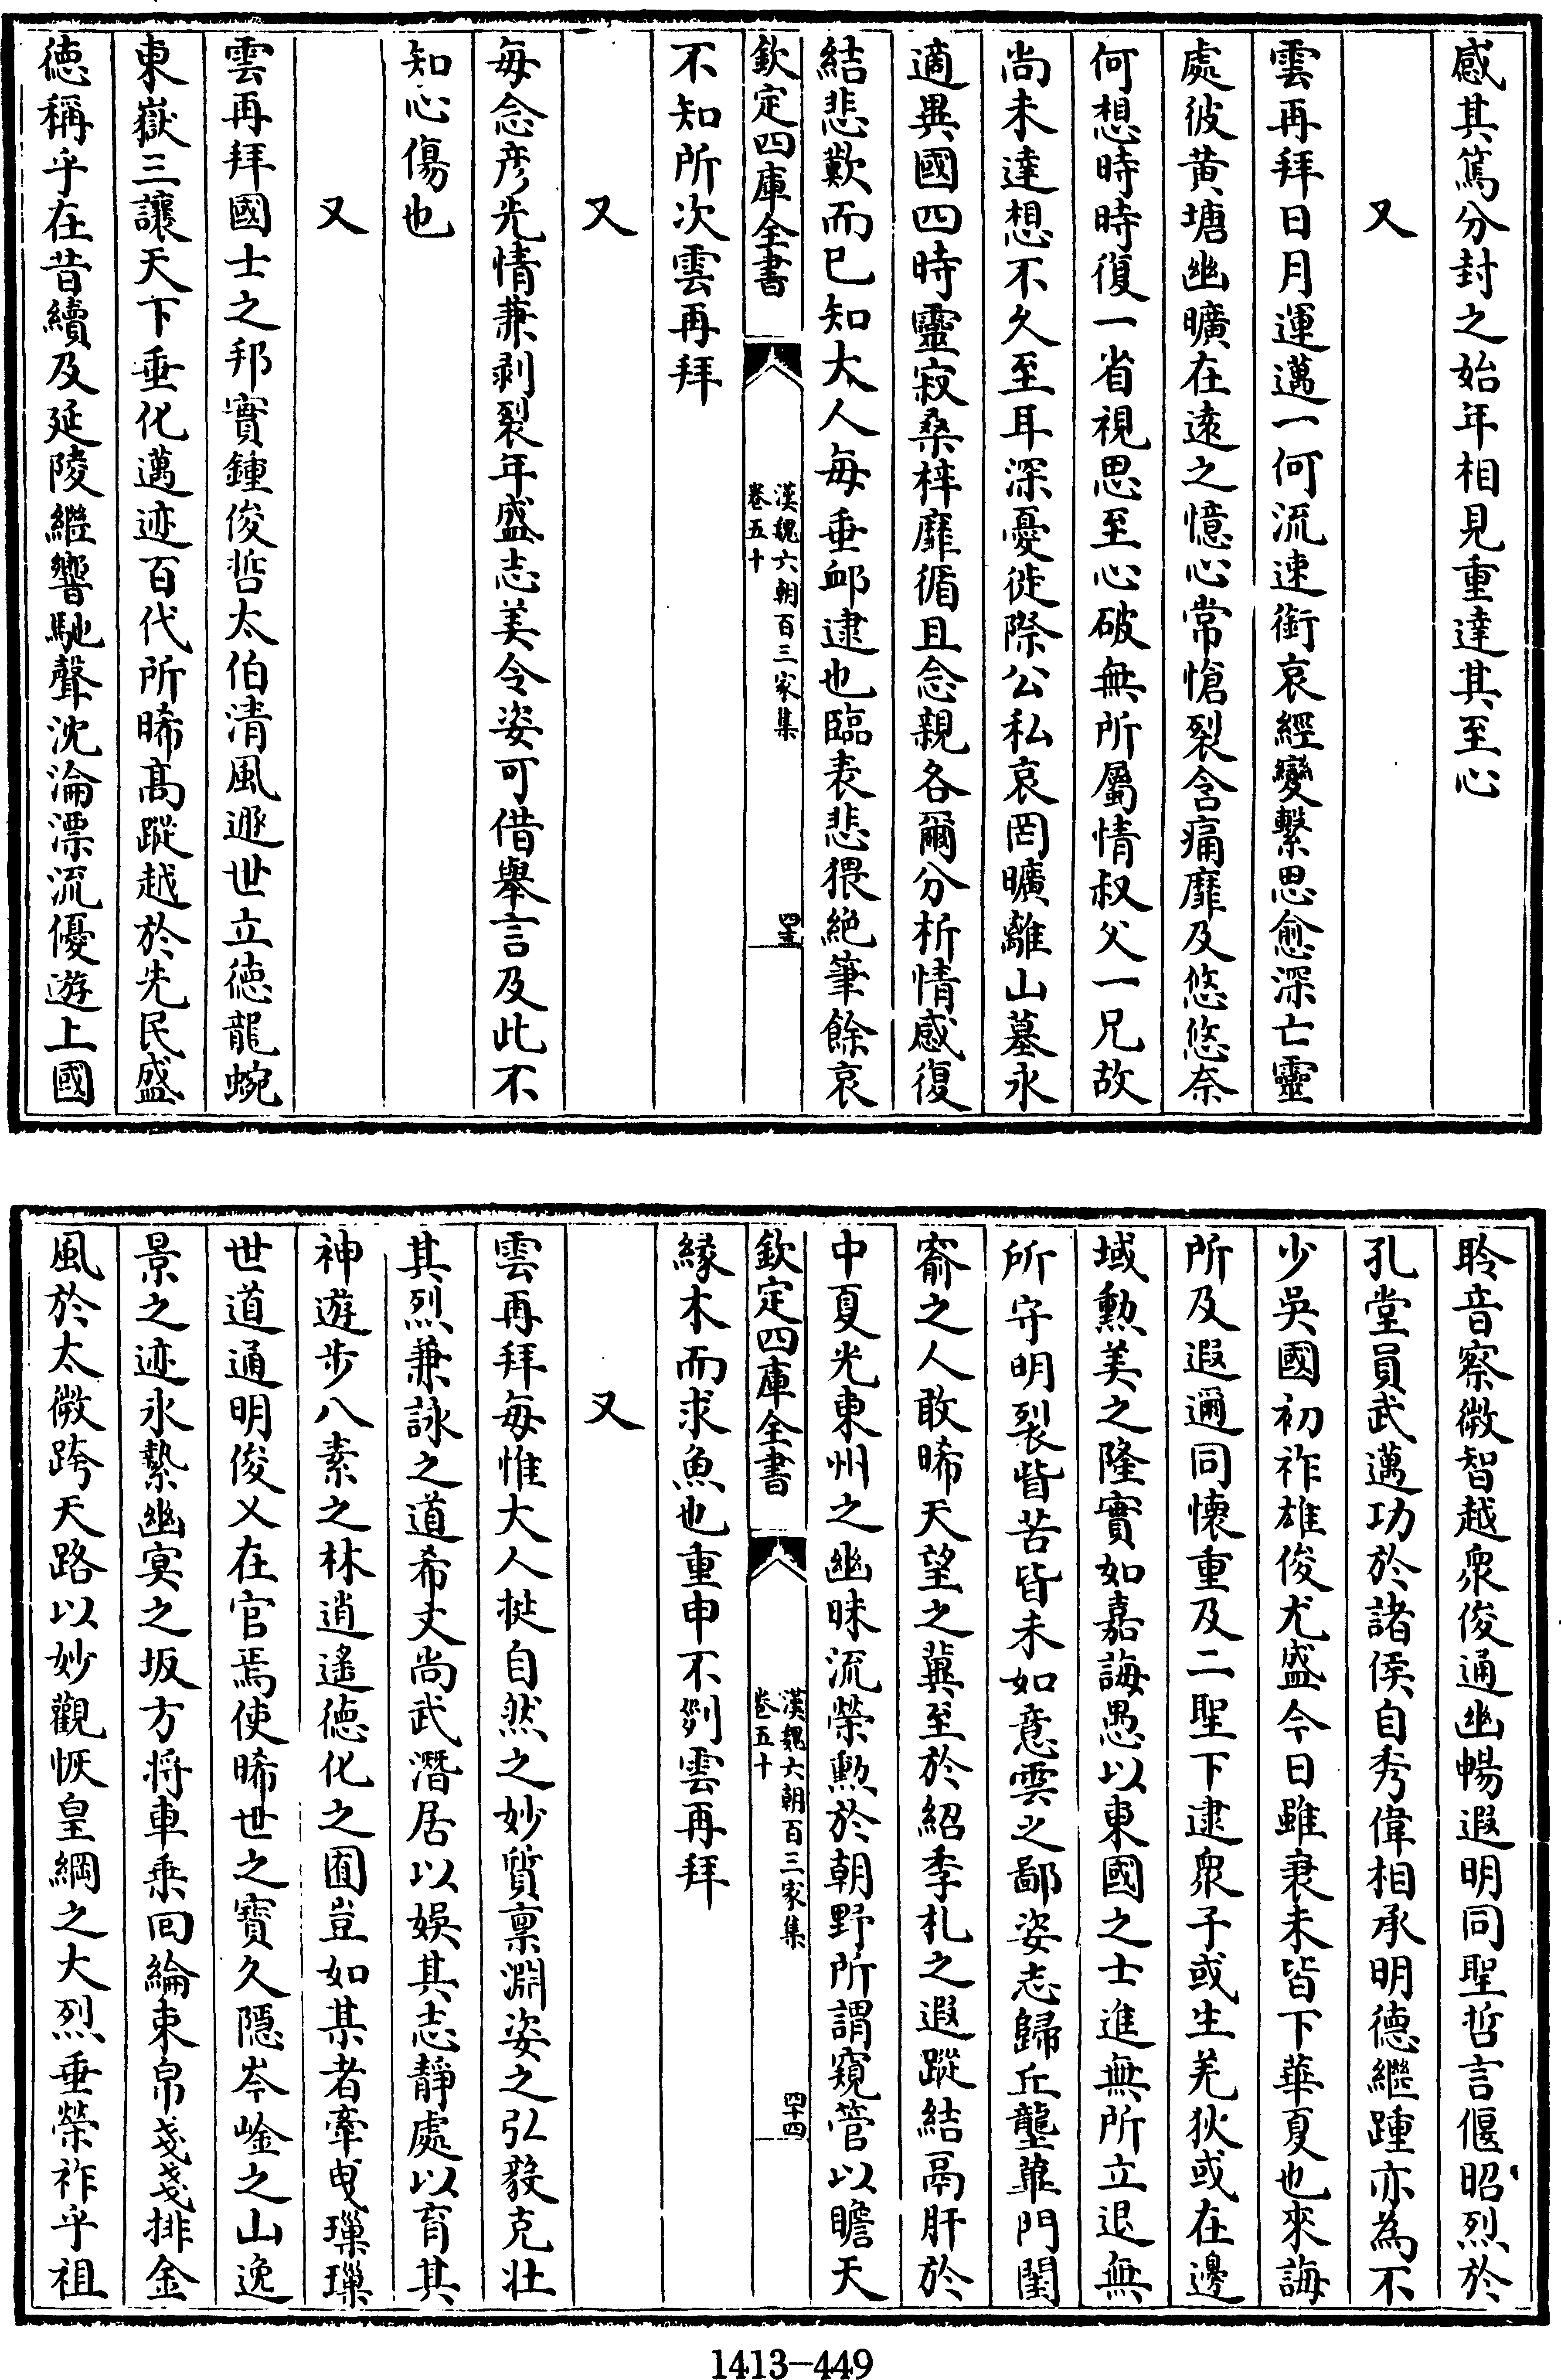 感其篤分封之始年相見重達其至心
又
雲再拜日月運邁一何流速銜哀經變繫思愈深亡靈
處彼黄塘幽曠在遠之憶心常愴裂含痛靡及悠悠奈
何想時時復一省視思至心破無所屬情叔父一兄故
尚未達想不久至耳深憂徙際公私哀罔曠離山墓永
適異國四時靈寂桑梓靡循且念親各爾分析情感復
結悲歎而已知大人每垂䘏逮也臨表悲猥絶筆餘哀
欽定四庫全書
漢魏六朝百三家集
卷五十
四三
不知所次雲再拜
又
每念彦先情兼剥裂年盛志美令姿可借舉言及此不
知心傷也
又
雲再拜國士之邦實鍾俊哲太伯清風遯世立徳龍蜿
東嶽三讓天下垂化邁迹百代所晞髙蹤越於先民盛
徳稱乎在昔續及延陵繼響馳聲沈淪漂流優遊上國
聆音察微智越衆俊通幽暢遐明同聖哲言偃昭烈於
孔堂員武邁功於諸侯自秀偉相承明德繼踵亦為不
少吳國初祚雄俊尤盛今日雖衰未皆下華夏也來誨
所及遐邇同懐重及二聖下逮衆子或生羌狄或在邊
域勲美之隆實如嘉誨愚以東國之士進無所立退無
所守明裂眥苦皆未如意雲之鄙姿志歸丘壟蓽門閨
窬之人敢晞天望之冀至於紹季札之遐蹤結鬲肝於
中夏光東州之幽昧流榮勲於朝野所謂窺管以瞻天
欽定四庫全書
漢魏六朝百三家集
卷五十
四十四
緣木而求魚也重申不列雲再拜
又
雲再拜每惟大人挻自然之妙質禀淵姿之弘毅克壯
其烈兼詠之道希文尚武潛居以娯其志靜處以育其
神遊步八素之林逍遙徳化之囿豈如某者牽曳璅璅
世道通明俊乂在官焉使晞世之寳久隱岑崟之山逸
景之迹永縶幽冥之坂方将車乗回綸束帛戔戔排金
風於太微跨天路以妙觀恢皇綱之大烈垂榮祚乎祖
1413—449